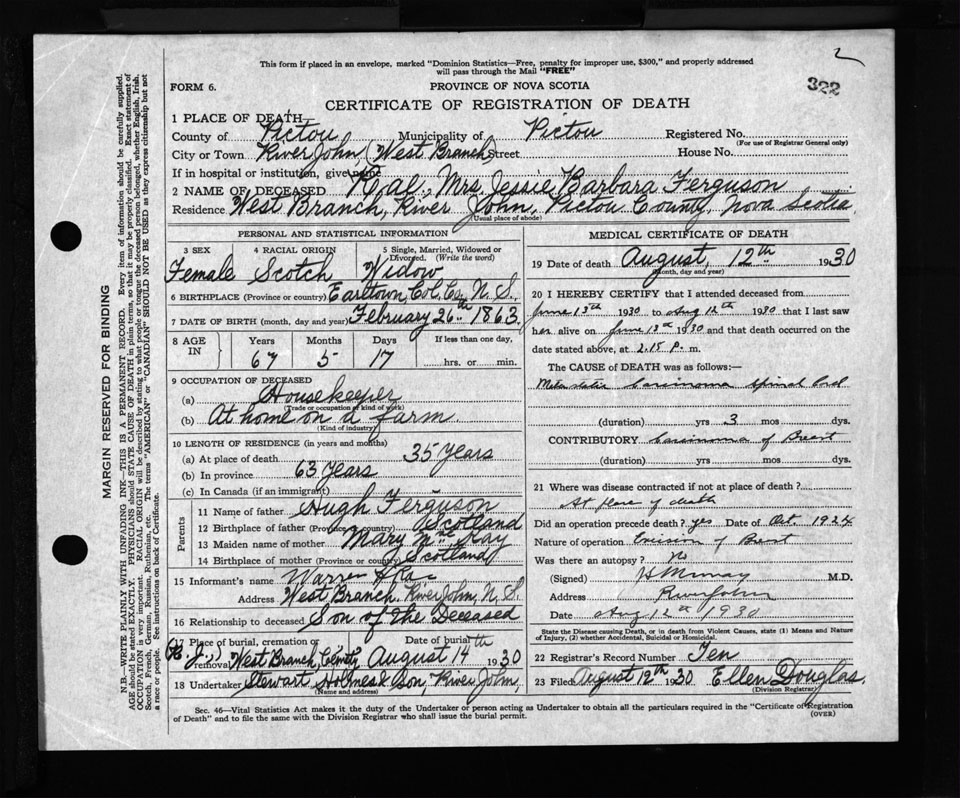 2
This form if placed in an envelope, marked "Dominion Statistics—Free, penalty for improper use, $300," and properly addressed
will pass through the Mail "FREE"
FORM 6.
PROVINCE OF NOVA SCOTIA
322
CERTIFICATE OF REGISTRATION OF DEATH
1 PLACE OF DEATH
County of Pictou Municipality of Pictou Registered No.
(For use of Registrar General only)
City or Town River John (West Branch) Street House No.
If in hospital or institution, give name
2 NAME OF DECEASED Mrs. Jessie Barbara Ferguson
Residence West Branch, River John, Pictou County, Nova Scotia.
(Usual place of abode)
PERSONAL AND STATISTICAL INFORMATION
3 SEX 4 RACIAL ORIGIN 5 Single, Married, Widowed or Divorced. (Write the word)
Female Scotch Widow
6 BIRTHPLACE (Province or country) Earltown Col. Co. N. S.
7 DATE OF BIRTH (month, day and year) February 26th 1863.
8 AGE IN Years Months Days If less than one day,
67 5 17 hrs. or min.
9 OCCUPATION OF DECEASED
(a) Housekeeper
(Trade or occupation or kind of work)
(b) At home on a farm.
(Kind of industry)
10 LENGTH OF RESIDENCE (in years and months)
(a) At place of death 35 years
(b) In province 63 years
(c) In Canada (if an immigrant)
Parents
11 Name of father Hugh Ferguson
12 Birthplace of father (Province or country) Scotland
13 Maiden name of mother Mary Kay
14 Birthplace of mother (Province or country) Scotland
15 Informant's name Warren
Address West Branch, River John, N. S.
16 Relationship to deceased Son of the Deceased
17 Place of burial, cremation or removal Date of burial
West Branch, August 14th 1930
18 Undertaker Stewart Holmes & Son, River John,
(Name and address)
MEDICAL CERTIFICATE OF DEATH
19 Date of death August, 12th 1930
(Month, day and year)
20 I HEREBY CERTIFY that I attended deceased from
June 13th 1930 to Aug 12th 1930 that I last saw
her alive on June 13th 1930 and that death occurred on the
date stated above, at 2.15 p. m.
The CAUSE of DEATH was as follows:—
Metastatic Carcinoma Spinal Cord
(duration) yrs 3 mos dys.
CONTRIBUTORY Carcinoma of Breast
(duration) yrs mos dys.
21 Where was disease contracted if not at place of death?
At place of death
Did an operation precede death? yes Date of Oct. 1924
Nature of operation Excision of Breast
Was there an autopsy? No
(Signed) H Murray M.D.
Address River John
Date Aug 12th 1930
State the Disease causing Death, or in death from Violent Causes, state (1) Means and Nature
of Injury, (2) whether Accidental, Suicidal or Homicidal.
22 Registrar's Record Number Ten
23 Filed August 12th 1930 Ellen Douglas,
(Division Registrar)
Sec. 46—Vital Statistics Act makes it the duty of the Undertaker or person acting as Undertaker to obtain all the particulars required in the "Certificate of Registration
of Death" and to file the same with the Division Registrar who shall issue the burial permit.
(OVER)
MARGIN RESERVED FOR BINDING
N.B.—WRITE PLAINLY WITH UNFADING INK—THIS IS A PERMANENT RECORD. Every item of information should be carefully supplied.
AGE should be stated EXACTLY. PHYSICIANS should STATE CAUSE OF DEATH in plain terms, so that it may be properly classified. Exact statement of
OCCUPATION is very important. RACIAL ORIGIN will be described by stating to what people or tongue the deceased person belonged, whether English, Irish,
Scotch, French, German, Russian, Ruthenian, etc. The terms "AMERICAN" or "CANADIAN" SHOULD NOT BE USED as they express citizenship but not
a race or people. See instructions on back of Certificate.